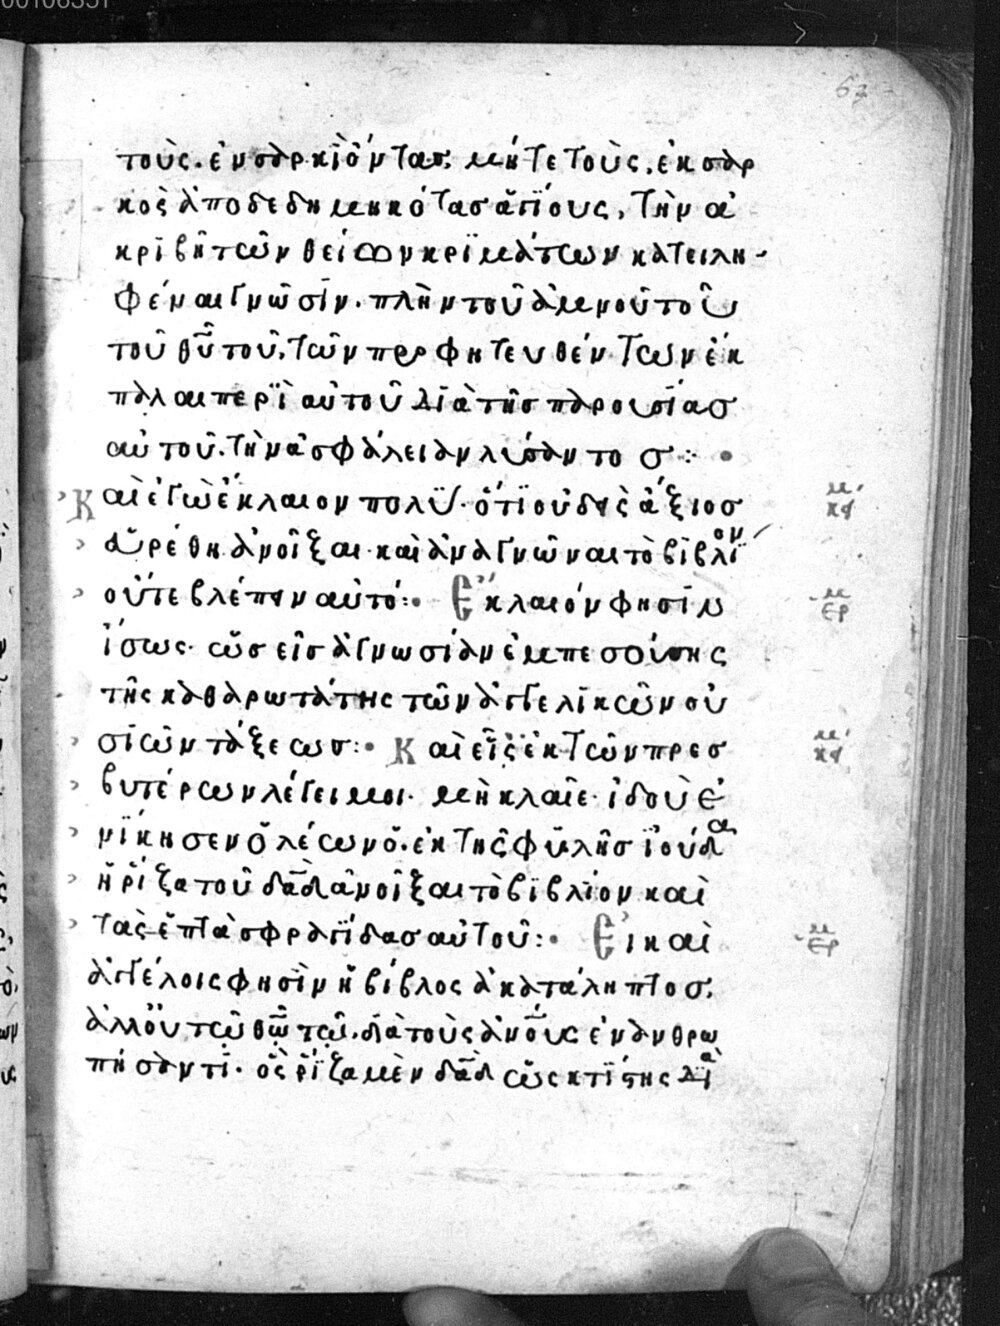 00106351
67
τοὺς. ἐν σαρκὶ ὄντας, μήτε τοὺς. ἐκ σαρ
κὸς ἀποδεδημηκότας ἁγίους, τὴν ἀ
κριβῆ τῶν θείων κριμάτων κατειλη
φέναι γνῶσιν. πλὴν τοῦ ἀμνοῦ τοῦ
τοῦ θῦ τοῦ, τῶν προφητευθέντων ἐκ
πάλαι περὶ αὐτοῦ διὰ τῆς παρουσίας
αὐτοῦ. τὴν ἀσφάλειαν λύσαντος :·
Καὶ ἐγὼ ἔκλαιον πολύ. ὅτι οὐδεὶς ἄξιος
εὑρέθη ἀνοῖξαι. καὶ ἀναγνῶναι τὸ βιβλίον
οὔτε βλέπειν αὐτό:· Ἔκλαιον φησὶν
ἴσως. ὡς εἰς ἀγνωσίαν ἐμπεσούσης
τῆς καθαρωτάτης τῶν ἀγγελικῶν οὐ
σιῶν τάξεως:· Καὶ εἷς ἐκ τῶν πρεσ
βυτέρων λέγει μοι. μὴ κλαῖε. ἰδοὺ ἐ
νίκησεν ὁ λέων ὁ. ἐκ τῆς φυλῆς ἰούδα
ἡ ῥίζα τοῦ δαδ ἀνοῖξαι τὸ βιβλίον καὶ
τὰς ἑπτὰ σφραγῖδας αὐτοῦ:· Εἰ καὶ
ἀγγέλοις φησὶν ἡ βίβλος ἀκατάληπτος,
ἀλλ' οὐ τῷ θῶ τῶ. διὰ τοὺς ἀνους ἐνανθρω
πήσαντι. ὃς ῥίζα μὲν δαδ ὡς κτίστης διὰ
κει
ερ
κει
ερ